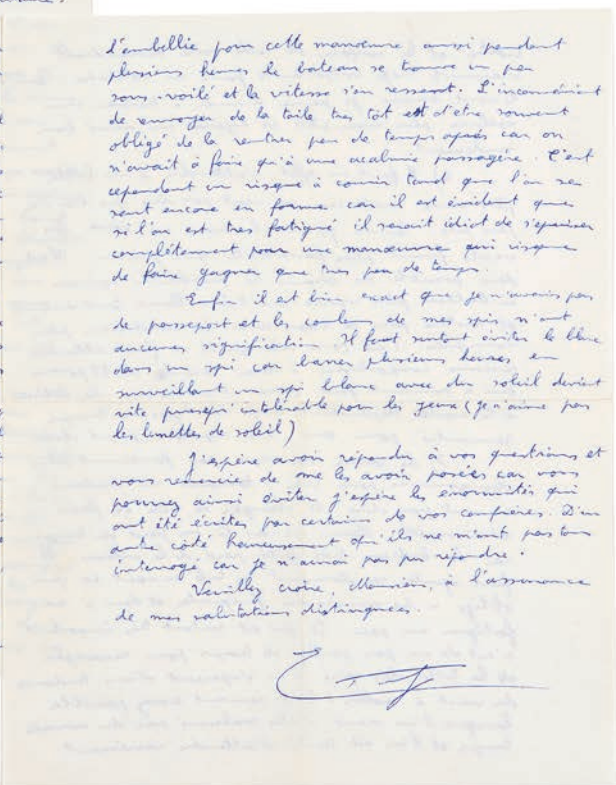 d'embellie pour cette manœuvre aussi pendant
plusieurs heures le bateau se trouve un peu
sous-voilé et la vitesse s'en ressent. L'inconvénient
de renvoyer de la toile tres tôt est d'être souvent
obligé de la rentrer peu de temps après car on
n'avait à faire qu'à une acalmie passagère. C'est
cependant un risque à courir tant que l'on se
sent encore en forme car il est évident que
si l'on est tres fatigué il serait idiot de s'épuiser
complètement pour une manœuvre qui risque
de faire gagner que tres peu de temps.
Enfin il est bien exact que je n'avais pas
de passeport et les couleurs de mes spis n'ont
aucunes signification. Il faut surtout éviter le blanc
dans un spi car barrer plusieurs heures en
surveillant un spi blanc avec du soleil devient
vite presqu'intolérable pour les yeux (je n'aime pas
les lunettes de soleil)
J'espère avoir répondu à vos questions et
vous remercie de me les avoir posées car vous
pourrez ainsi éviter j'espère les énormités qui
ont été écrites par certains de vos confrères. D'un
autre côté heureusement qu'ils ne m'ont pas tous
interrogé car je n'aurais pas pu répondre.
Veuillez croire, Monsieur, à l'assurance
de mes salutations distinguées.